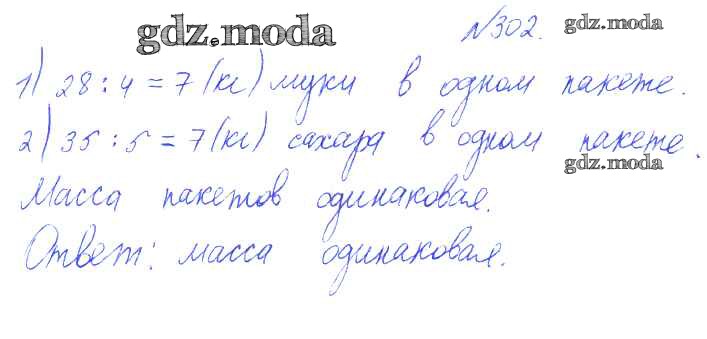 gdz.moda
№302.
gdz.moda
1) 28 : 4 = 7 (кг) муки в одном пакете.
2) 35 : 5 = 7 (кг) сахара в одном пакете.
gdz.moda
Масса пакетов одинаковая.
Ответ: масса одинаковая.